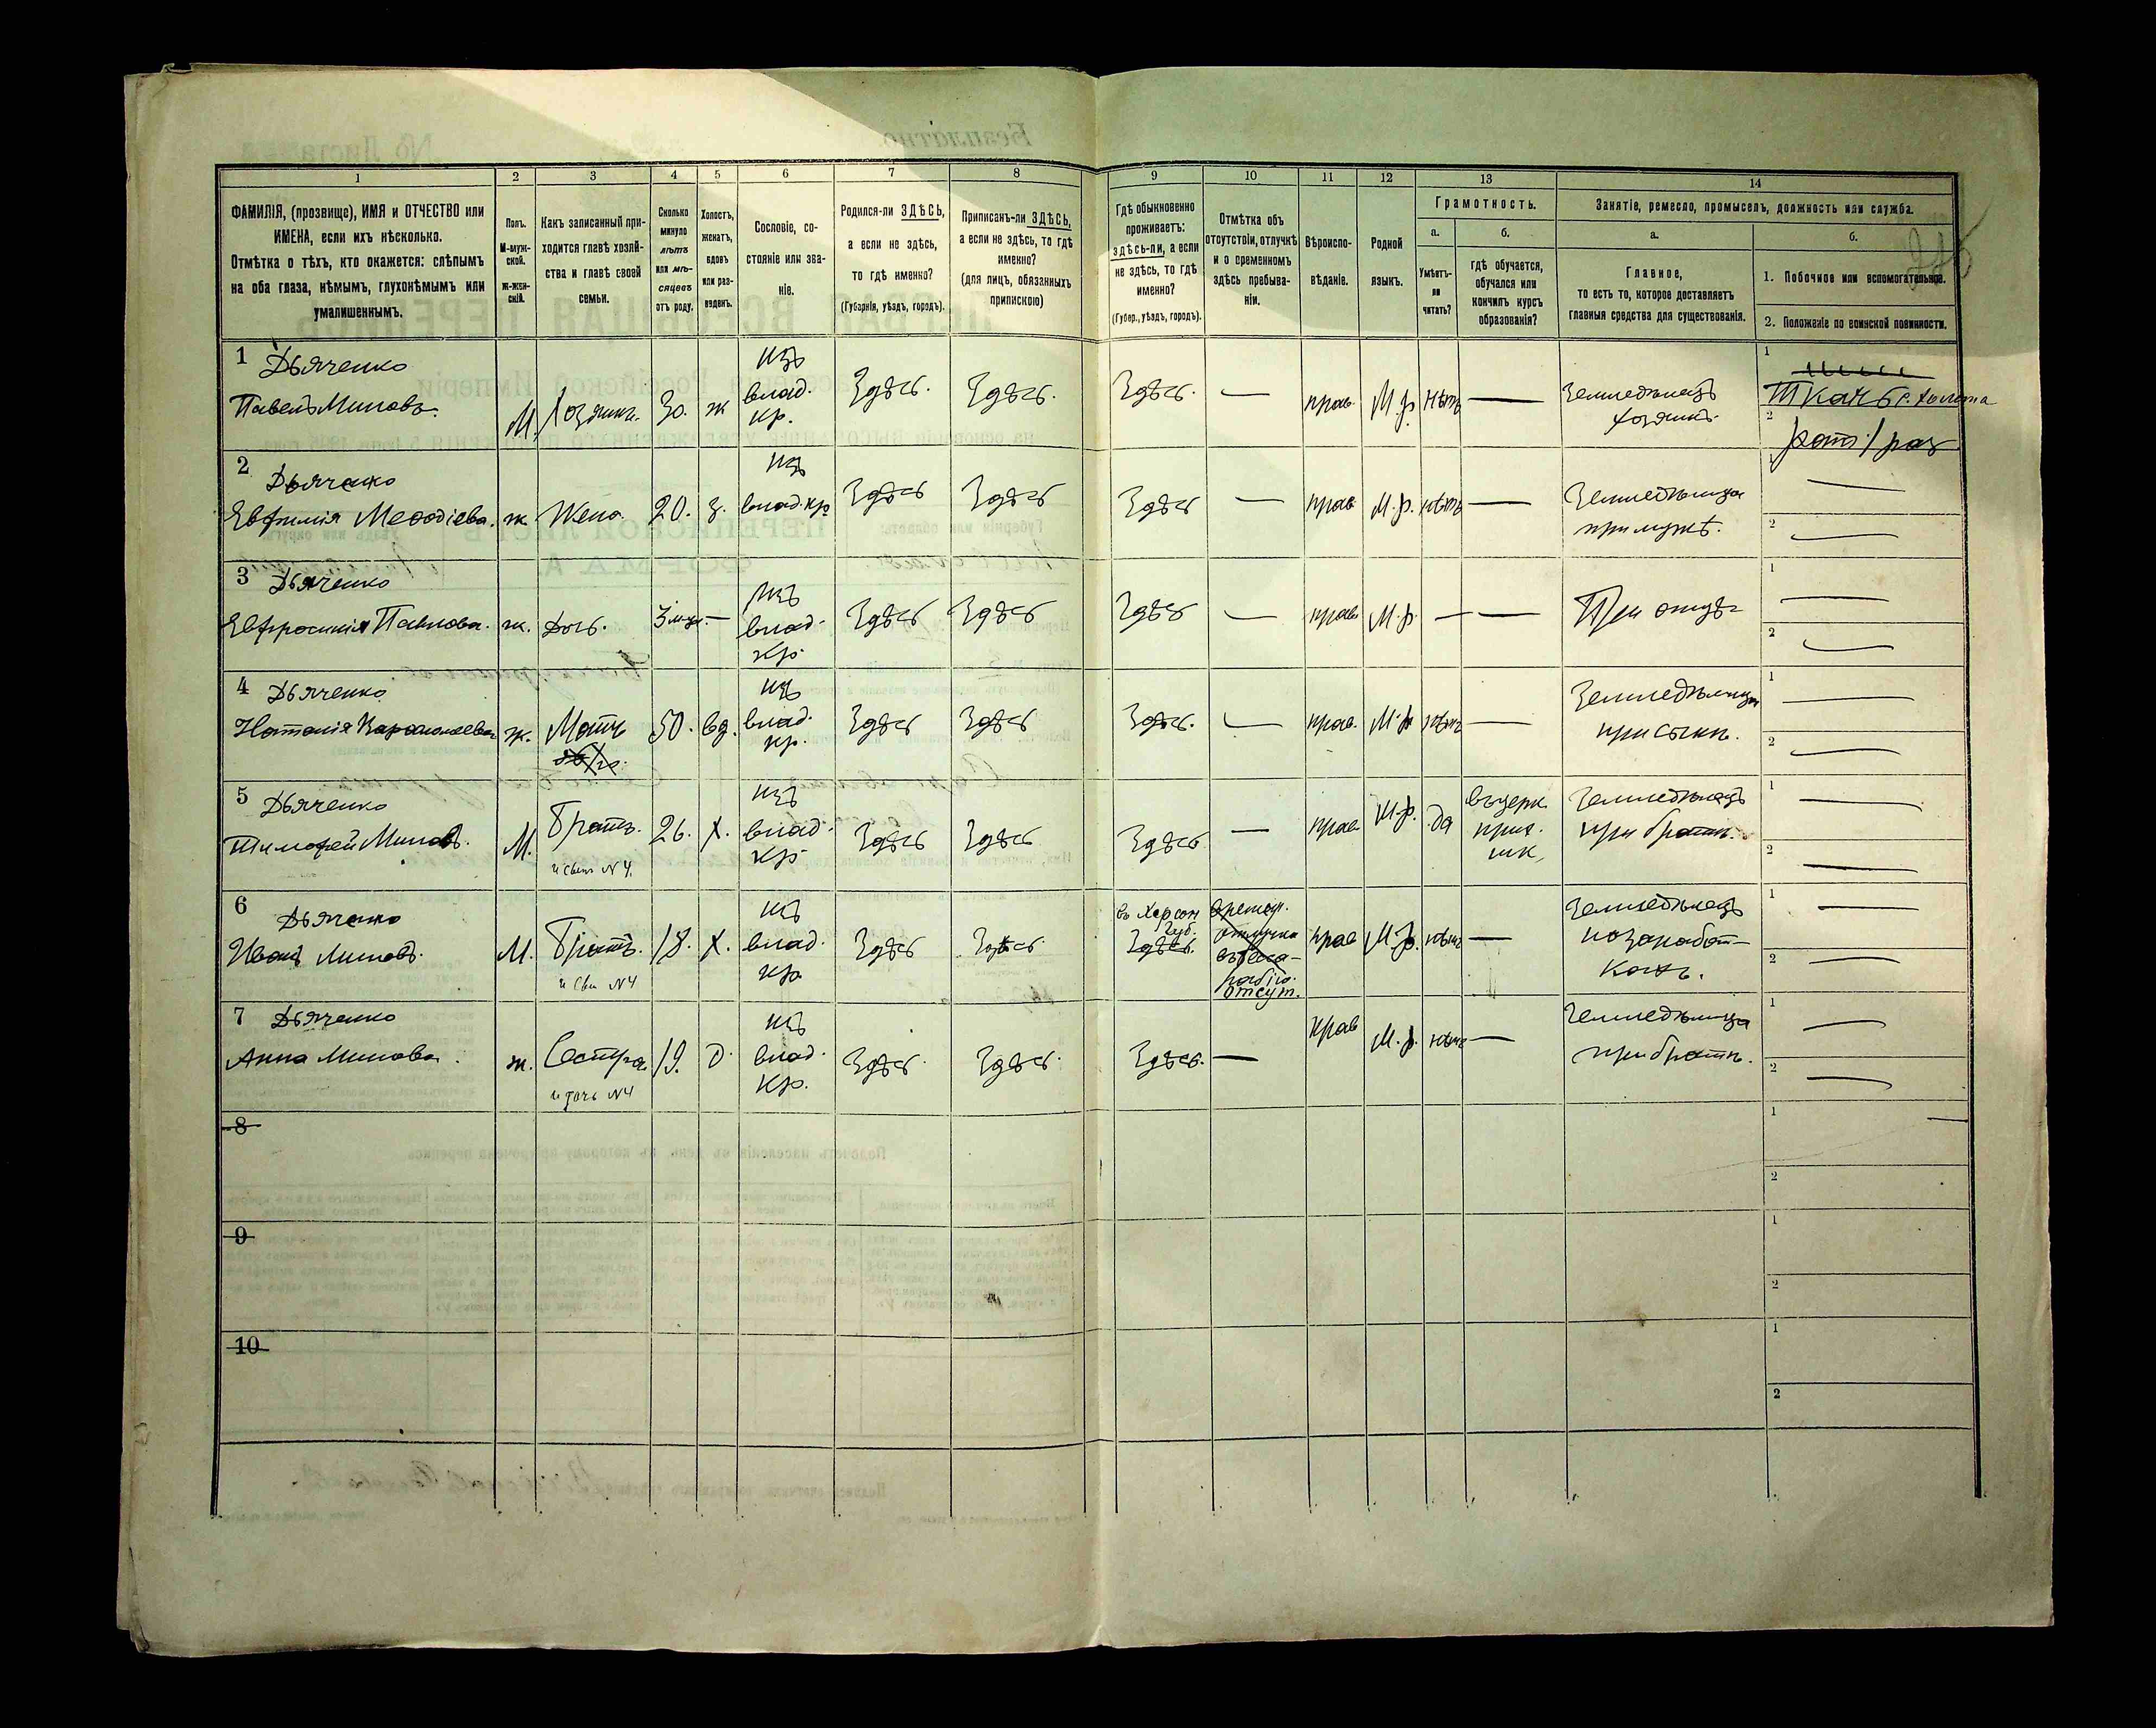 1 2 3 4 5 6 7 8 9 10 11 12 13 14
ФАМИЛІЯ, (прозвище), ИМЯ и ОТЧЕСТВО или
ИМЕНА, если ихъ нѣсколько.
Отмѣтка о тѣхъ, кто окажется: слѣпымъ
на оба глаза, нѣмымъ, глухонѣмымъ или
умалишеннымъ.
Полъ.
М-муж-
ской.
Ж-жен-
скій.
Какъ записанный при-
ходится главѣ хозяй-
ства и главѣ своей
семьи.
Сколько
минуло
лѣтъ
или мѣ-
сяцевъ
отъ роду.
Холостъ,
женатъ,
вдовъ
или раз-
веденъ.
Сословіе, со-
стояніе или зва-
ніе.
Родился-ли ЗДѢСЬ,
а если не здѣсь,
то гдѣ именно?
(Губернія, уѣздъ, городъ).
Приписанъ-ли ЗДѢСЬ,
а если не здѣсь, то гдѣ
именно?
(для лицъ, обязанныхъ
припискою)
Гдѣ обыкновенно
проживаетъ:
здѣсь-ли, а если
не здѣсь, то гдѣ
именно?
(Губер., уѣздъ, городъ).
Отмѣтка объ
отсутствіи, отлучкѣ
и о временномъ
здѣсь пребыва-
ніи.
Вѣроиспо-
вѣданіе.
Родной
языкъ.
Грамотность.
а.
Умѣетъ-
ли
читать?
б.
гдѣ обучается,
обучался или
кончилъ курсъ
образованія?
Занятіе, ремесло, промыселъ, должность или служба.
а.
Главное,
то есть то, которое доставляетъ
главныя средства для существованія.
б.
1. Побочное или вспомогательное.
2. Положеніе по воинской повинности.
1 Дьяченко
Павелъ Миновъ.
М. Хозяинъ. 30. ж
изъ
влад.
кр.
Здѣсь. Здѣсь. Здѣсь. — прав. М.р. нѣтъ —
Земледѣлецъ
хозяинъ.
1
Ткачъ
2
рат. 1 раз
2 Дьяченко
Евфимія Меѳодіева. ж. Жена. 20. з.
изъ
влад. кр
Здѣсь Здѣсь Здѣсь — прав М.р. нѣтъ —
Земледѣлица
при мужѣ.
—
2 —
3 Дьяченко
Евфросинія Павлова. ж. Дочь. 3 мѣс. —
изъ
влад.
кр.
Здѣсь Здѣсь Здѣсь — прав. М.р. — —
При отцѣ
1 —
2 —
4 Дьяченко
Наталія ж. Мать 50. вд.
изъ
влад.
кр.
Здѣсь Здѣсь Здѣсь. — прав. М.р нѣтъ —
Земледѣлица
при сынѣ.
1 —
2 —
5 Дьяченко
Тимофей Миновъ. М. Братъ. 26. Х.
и сынъ N 4.
изъ
влад.
кр
Здѣсь Здѣсь Здѣсь — прав М.р. да
въ церк.
прих.
шк.
Земледѣлецъ
при братѣ.
1 —
2 —
6 Дьяченко
Иванъ Миновъ. М. Братъ. 18. Х.
и сын N4
изъ
влад.
кр
Здѣсь Здѣсь.
въ Херсон
Губ.
Здѣсь.
времен.
отлучка
въ Бесса-
рабію.
отсут.
прав М.р. нѣтъ —
Земледѣлецъ
на заработ-
кахъ.
1 —
2 —
7 Дьяченко
Анна Минова. ж. Сестра 19. д.
и дочь N4
изъ
влад.
кр.
Здѣсь. Здѣсь. Здѣсь. — прав М.р. нѣтъ —
Земледѣлица
при братѣ.
1 —
2 —
8
1 —
2
9
1
2
10
1
2